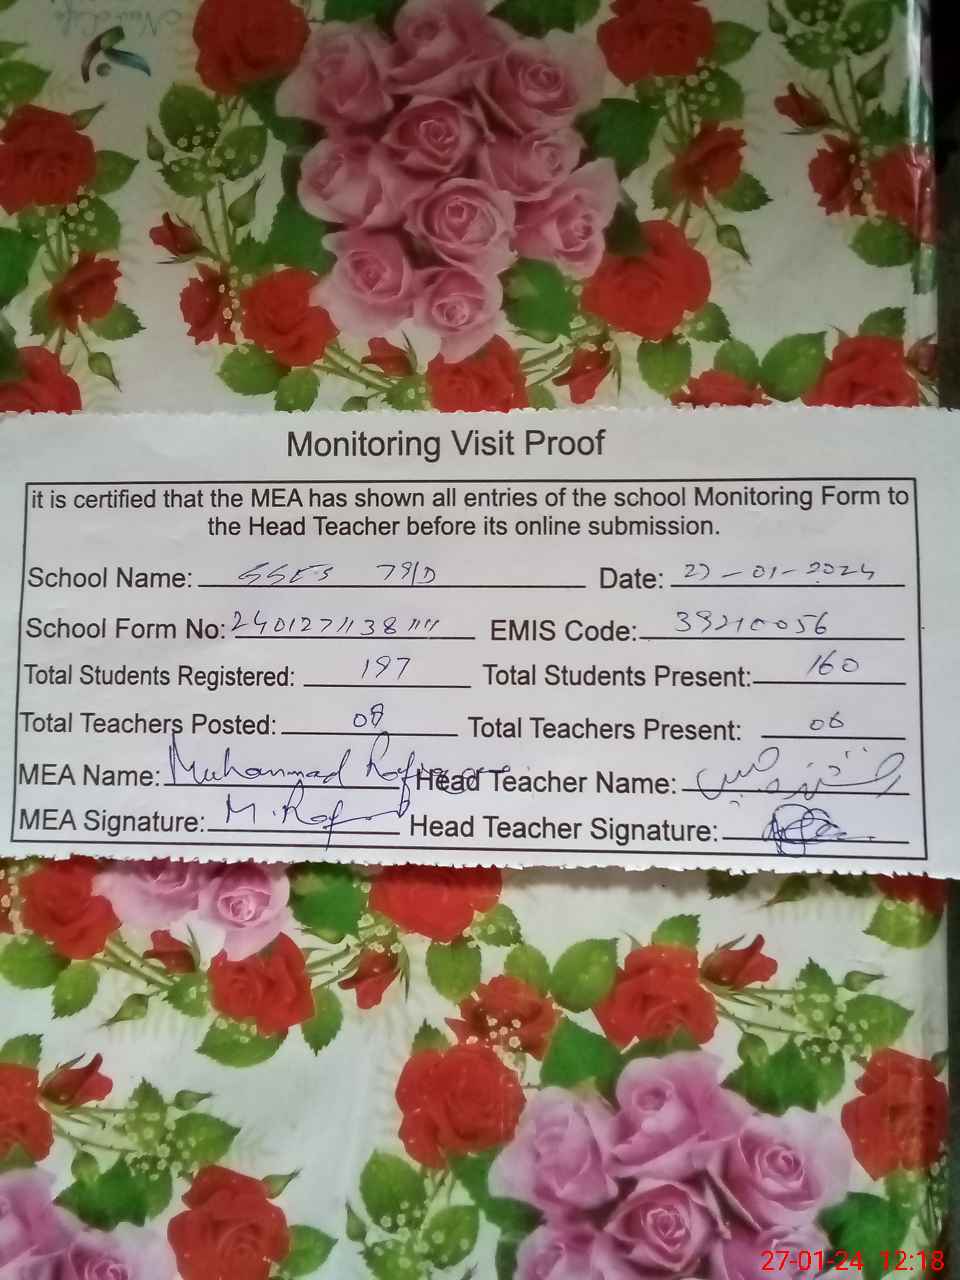 Monitoring Visit Proof
it is certified that the MEA has shown all entries of the school Monitoring Form to
the Head Teacher before its online submission.
School Name: GGES 79/D Date: 27-01-2024
School Form No: EMIS Code: 39210056
Total Students Registered: 197 Total Students Present: 160
Total Teachers Posted: 08 Total Teachers Present: 06
MEA Name: Muhammad Head Teacher Name:
MEA Signature: Head Teacher Signature:
27-01-24 12:18